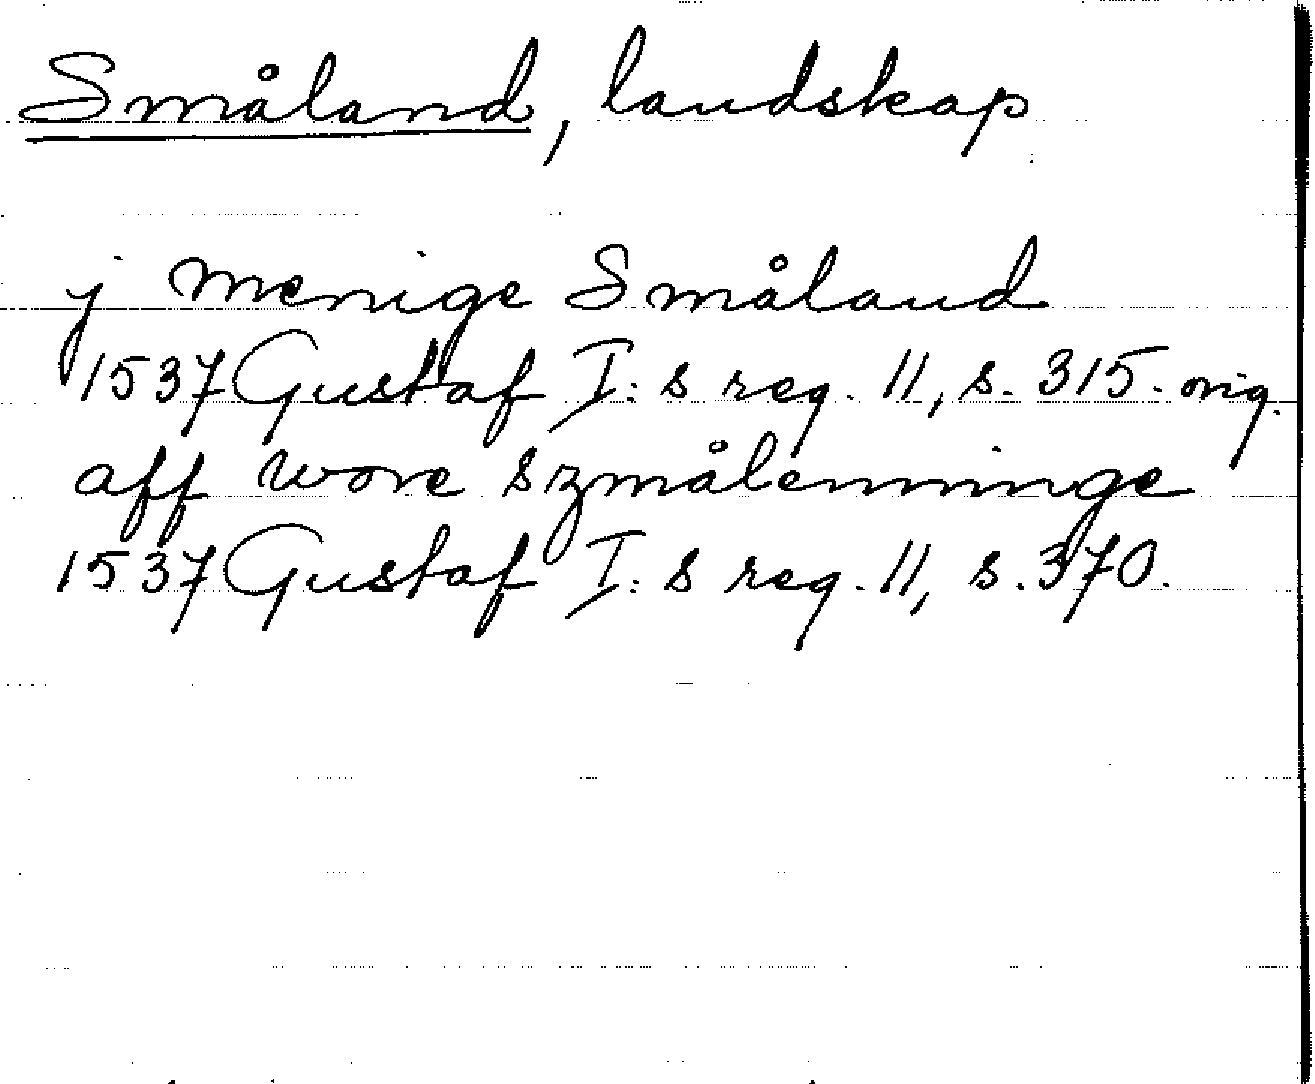 Småland, landskap
j menige Småland
1537 Gustaf I:s reg. 11, s. 315. orig.
aff wore szmålenninge
1537 Gustaf I:s reg. 11, s. 370.